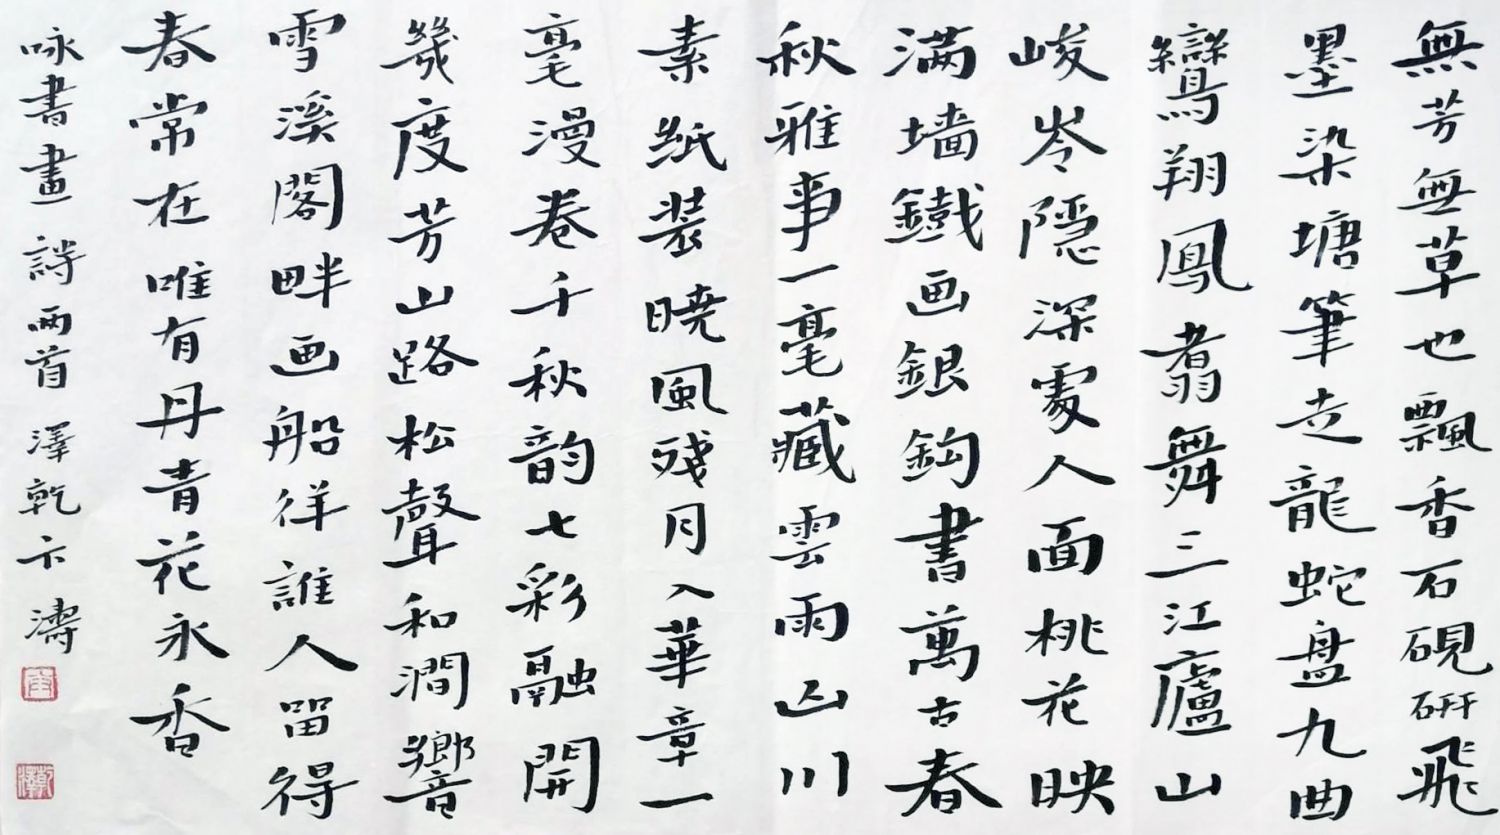 無芳無草也飄香石硯研飛
墨染塘筆走龍蛇盤九曲
鸞翔鳳翥舞三江廬山
峻岑隠深處人面桃花映
满墙鐵画銀鈎書萬古春
秋雅事一毫藏雲雨山川
素紙装暁風残月入華章一
毫漫卷千秋韵七彩融開
幾度芳山路松聲和澗響
雪溪閣畔画船徉誰人留得
春常在唯有丹青花永香
咏書畫詩兩首澤乾卞濤